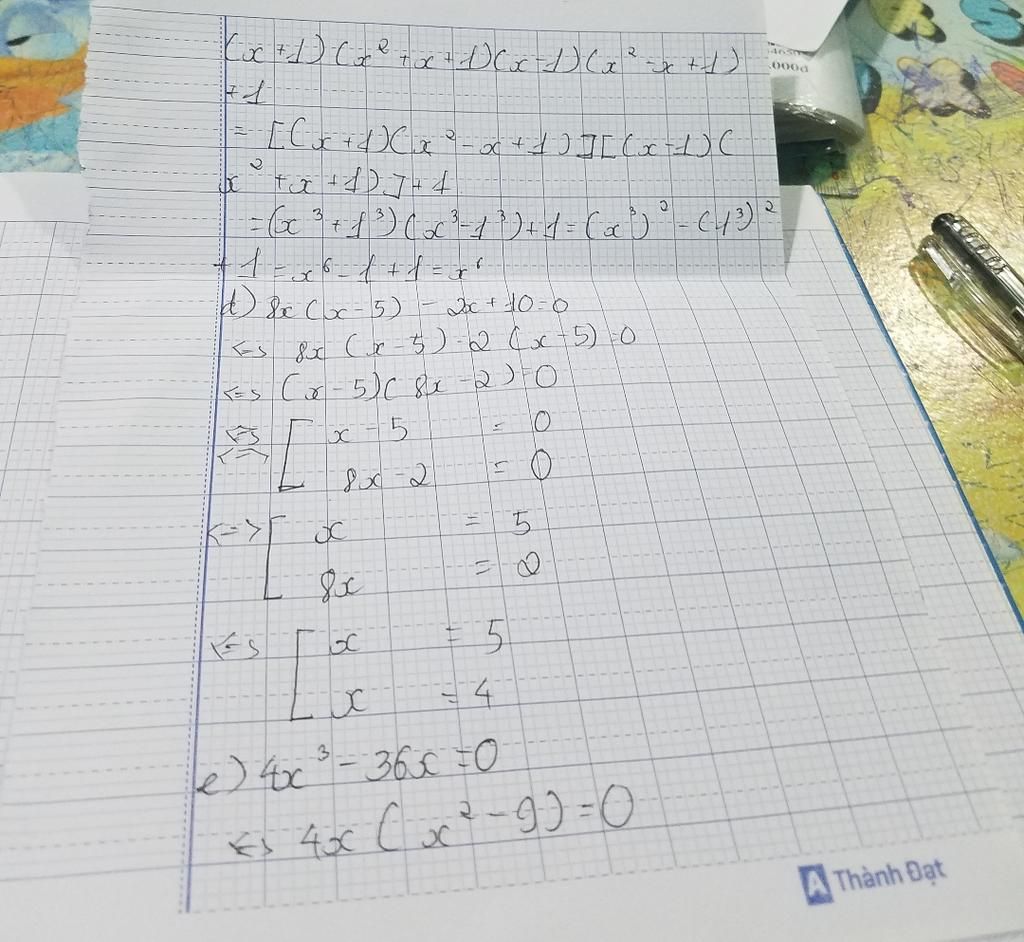 (x+1)(x²+x+1)(x-1)(x²-x+1)
+1
= [(x+1)(x²-x+1)][(x-1)(
x²+x+1)]+1
=(x³+1³)(x³-1³)+1=(x³)²-(1³)²
+1=x⁶-1+1=x⁶
d) 8x(x-5)-2x+10=0
<=> 8x(x-5)-2(x-5)=0
<=> (x-5)(8x-2)=0
<=> [ x-5 = 0
<=> 8x-2 = 0
<=> [ x = 5
8x = 2
<=> [ x = 5
x = 4
e) 4x³-36x=0
<=> 4x(x²-9)=0
Thành Đạt
000đ